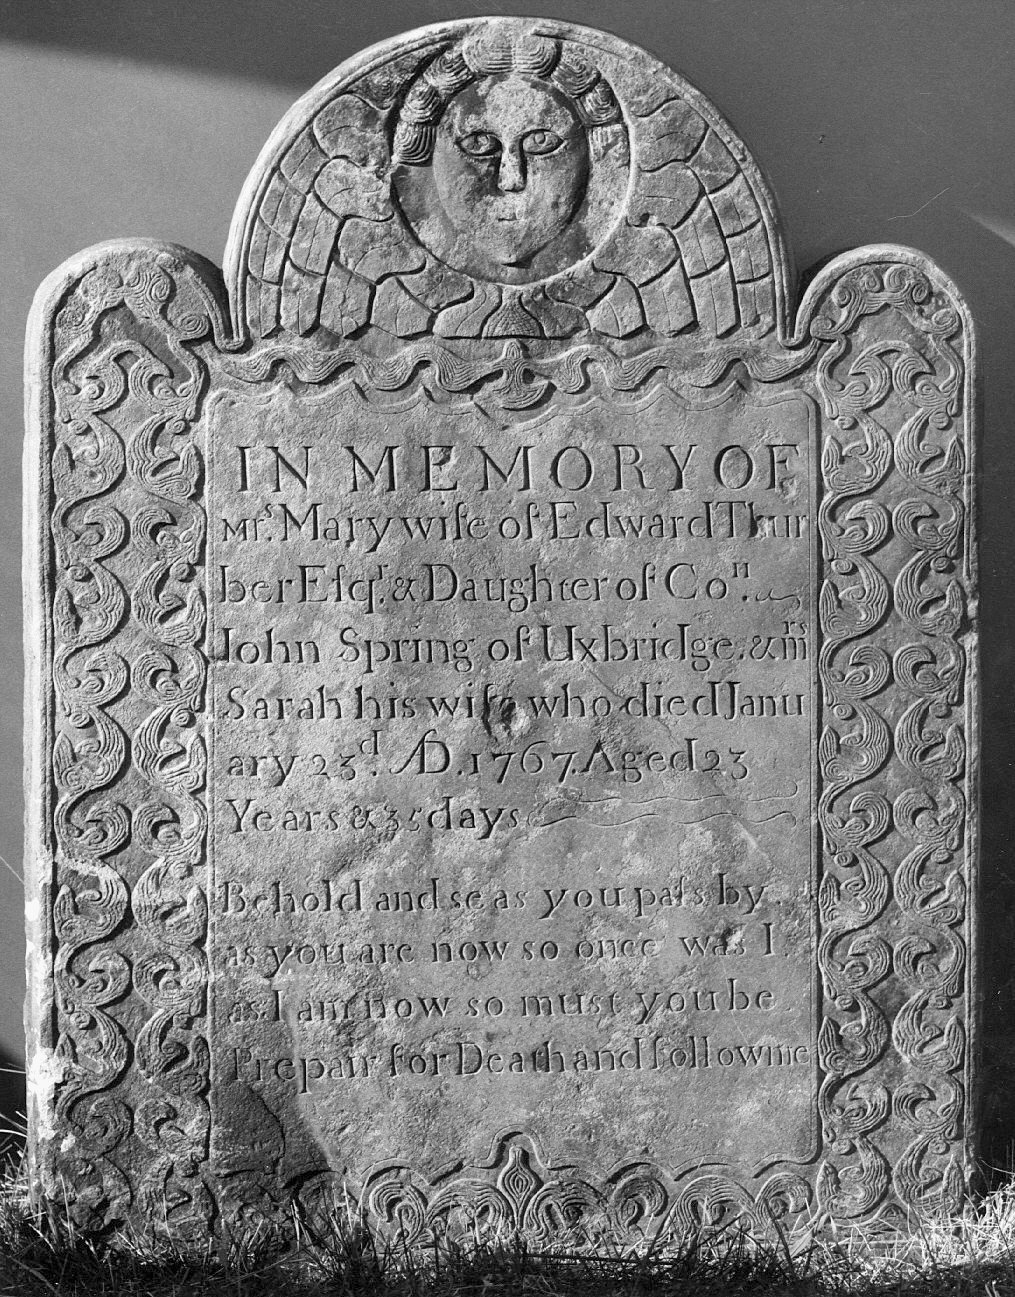 IN MEMORY OF
mrs. Mary wife of Edward Thur
ber Esqr. & Daughter of Con.
John Spring of Uxbridge. & mrs
Sarah his wife who died Janu
ary 23d. AD. 1767. Aged 23
Years & 35 days
Behold and se as you paſs by
as you are now so once was I
as I am now so must you be
Prepair for Death and follow me